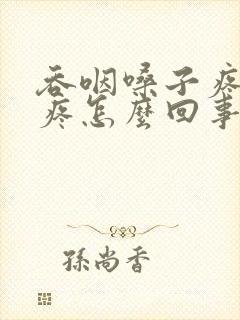 吞咽嗓子疼
疼怎麼回事
孫尚香